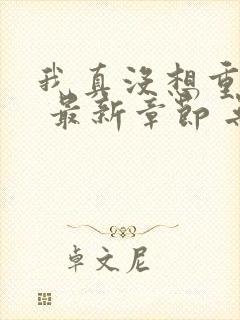 我真没想重
最新章节
卓文尼